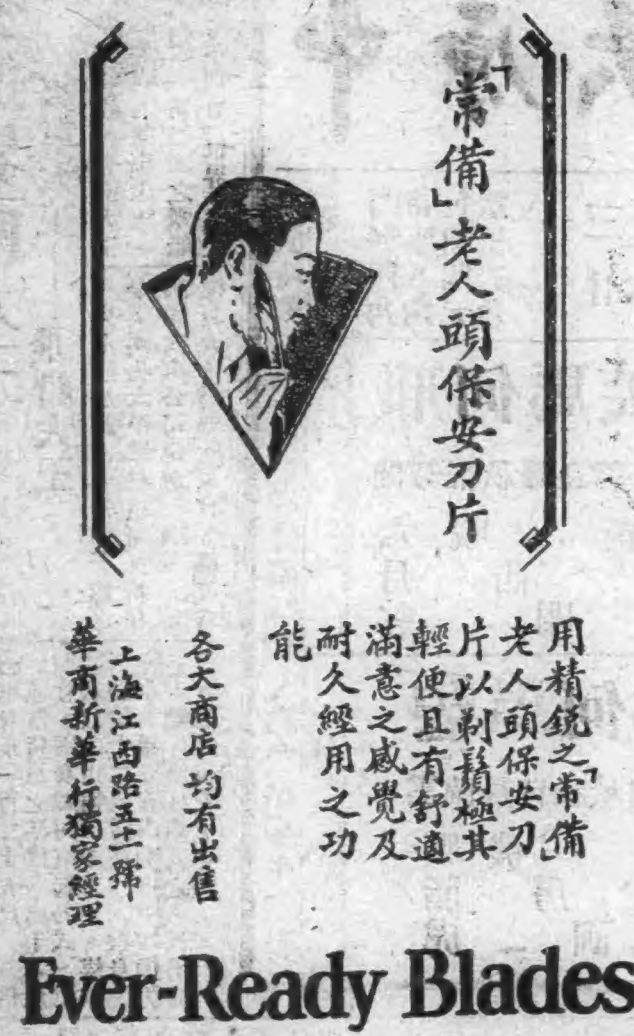 「常備」老人頭保安刀片
用精銳之「常備」
老人頭保安刀
片以剃鬚極其
輕便且有舒適
滿意之感覺及
耐久經用之功
能
各大商店均有出售
上海江西路五十一號
華商新華行獨家經理
Ever-Ready Blades